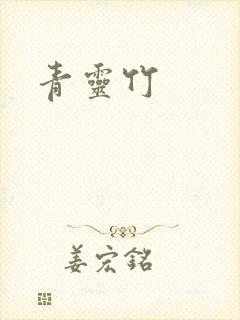 青靈竹
姜宏銘